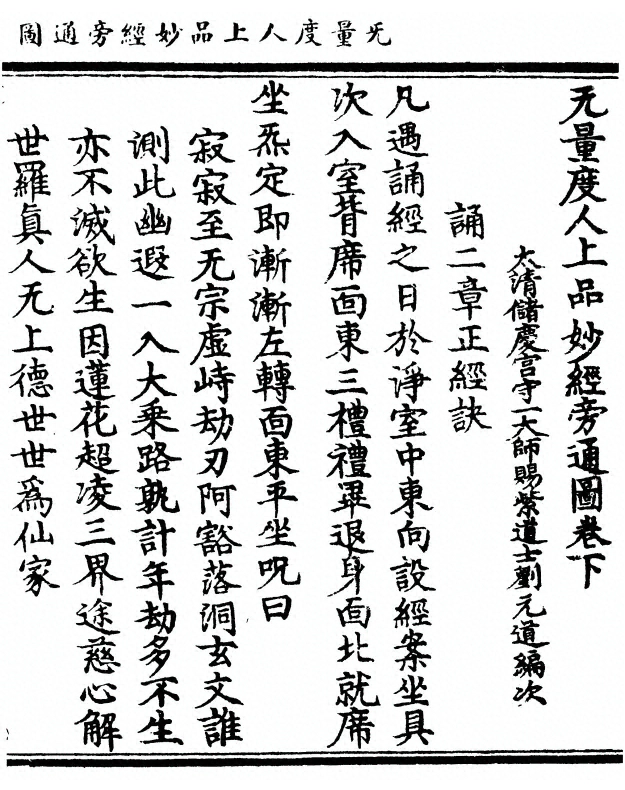 无量度人上品妙經旁通圖
无量度人上品妙經旁通圖卷下
太清儲慶宮守一大師賜紫道士劉元道編次
誦二章正經訣
凡遇誦經之日於淨室中東向設經案坐具
次入室背席面東三禮禮畢退身面北就席
坐炁定即漸漸左轉面東平坐呪曰
寂寂至无宗虛峙劫刃阿豁落洞玄文誰
測此幽遐一入大乘路孰計年劫多不生
亦不滅欲生因蓮花超凌三界途慈心解
世羅真人无上德世世爲仙家